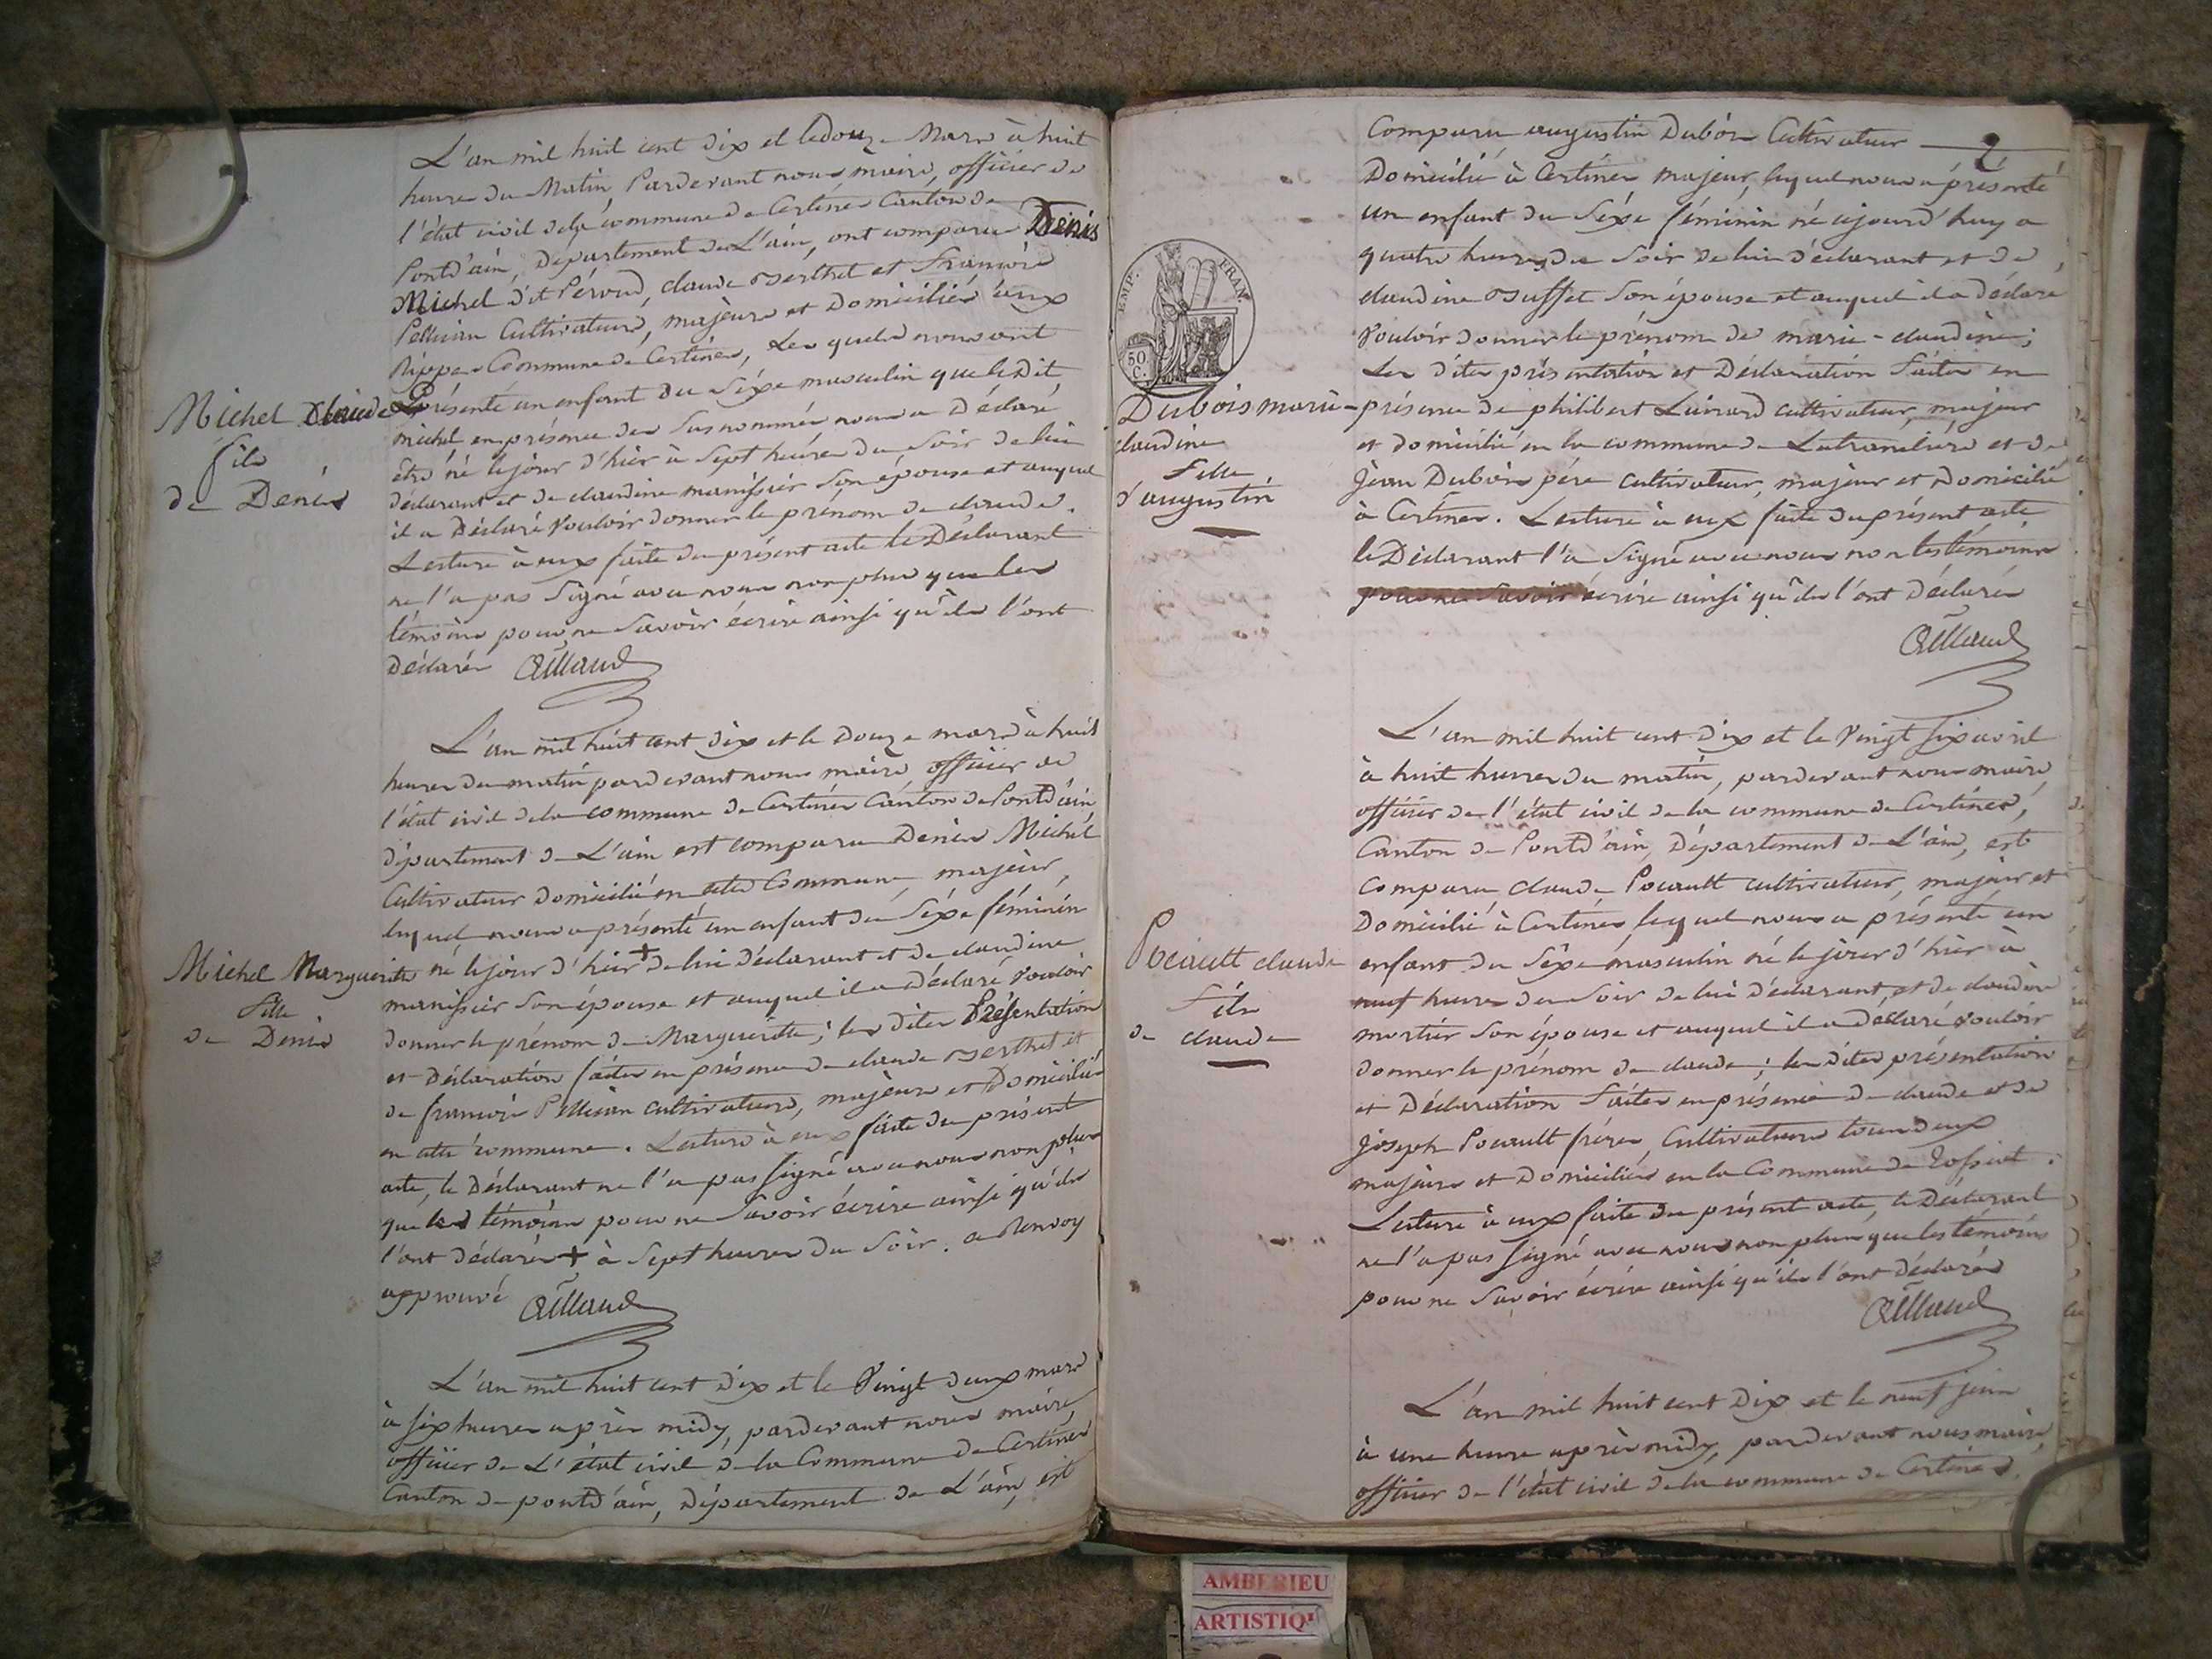 L'an mil huit cent dix et le douze Mars à huit
heures du Matin Pardevant nous maire, officier de
l'état civil de la commune de Certines Canton de
Pontd'ain, Département de L'ain, ont comparu Denis
Michel dit Péroud, claude Berthet et François
Pellician Cultivateurs, majeurs et Domiciliés aux
Rippes Commune de Certines, Lesquels nous ont
Présenté un enfant du Séxe masculin que le Dit
michel en présence des Susnommés nous a Déclaré
être né lejour d'hier à Sept heures du Soir de lui
déclarant et de claudine manissier Son épouse et auquel
il a Déclaré Vouloir donner le prénom de claude.
Lecture à eux faite du présent acte le Déclarant
ne l'a pas Signé avec nous non plus que les
témoins pour ne Savoir écrire ainsi qu'ils l'ont
Déclarés
Michel Claude
fils
de Denis
L'an mil huit cent dix et le Douze mars à huit
heures du matin pardevant nous maire, officier de
l'état civil de la commune de Certines Canton de Pontd'ain
département de L'ain est comparu Denis Michel
Cultivateur Domicilié en cette Commune, majeur,
lequel nous a présenté un enfant du Séxe féminin
né lejour d'hier + de lui déclarant et de claudine
manissier Son épouse et auquel il a Déclaré vouloir
donner le prénom de Marguerite; les dites Présentation
et Déclaration faites en présence de claude Berthet et
de françois Pellician cultivateurs, majeurs et Domiciliés
en cette commune. Lecture à eux faite du présent
acte, le Déclarant ne l'a pas signé avec nous non plus
que les témoins pour ne Savoir écrire ainsi qu'ils
l'ont déclarés + à Sept heures du Soir. a Renvoy
approuvé
Michel Marguerite
fille
de Denis
L'an mil huit cent Dix et le Vingt deux mars
à six heures après midy, pardevant nous maire,
officier de L'état civil de la Commune de Certines
Canton de pontd'ain, Département de L'ain, est
2
Comparu augustin Dubois Cultivateur
Domicilié à Certines majeur, lequel nous a présenté
un enfant du Séxe féminin né cejourd'huy a
quatre heures du Soir de lui déclarant et de
claudine Buffet Son épouse et auquel il a Déclaré
Vouloir donner le prénom de marie-claudine;
Les dites présentation et Déclaration faites en
présence de philibert cultivateur, majeur
et domicilié en la commune de Latranclière et de
Jean Dubois père cultivateur, majeur et Domicilié
à Certines. Lecture à eux faite du présent acte
le Déclarant l'a Signé avec nous non les témoins
pour ne Savoir écrire ainsi qu'ils l'ont Déclarés
EMP. FRAN.
50 C.
Dubois marie-
claudine
fille
d'augustin
L'an mil huit cent Dix et le Vingt six avril
à huit heures du matin, pardevant nous maire
officier de l'état civil de la commune de Certines,
Canton de Pontd'ain, Département de L'ain, est
comparu claude Pocault cultivateur, majeur et
Domicilié à Certines, lequel nous a présenté un
enfant du Séxe masculin né le jour d'hier à
neuf heures du Soir de lui déclarant, et de claudine
mortier Son épouse et auquel il a déclaré vouloir
donner le prénom de claude; les dites présentation
et Déclaration faites en présence de claude et de
joseph Pocault frères Cultivateurs tous deux
majeurs et Domiciliés en la Commune de Tossiat.
Lecture à eux faite du présent acte, le Déclarant
ne l'a pas signé avec nous non plus que les témoins
pour ne Savoir écrire ainsi qu'ils l'ont déclarés
Pocault claude
fils
de claude
L'an mil huit cent Dix et le neuf juin
à une heure après midy, pardevant nous maire,
officier de l'état civil de la commune de Certines
AMBERIEU
ARTISTIQU